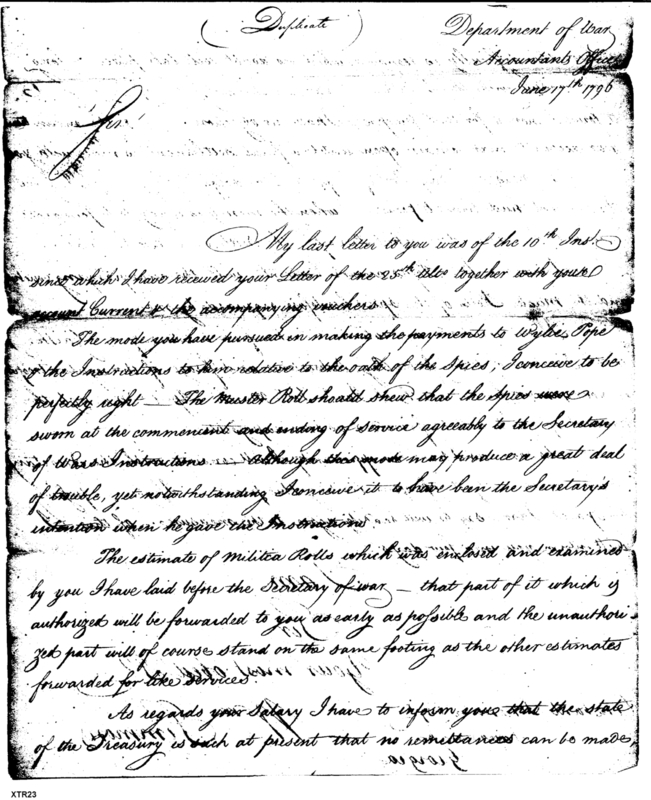 (Duplicate)
Department of War
Accountants Office
June 17th 1796
Sir
My last letter to you was of the 10th Inst.
since which I have received your Letter of the 25th Ulto together with your
account Current & the accompanying vouchers
The mode you have pursued in making the payments to Wylie Pope
& the Instructions to him relative to the oath of the Spies, I conceive to be
perfectly right — The Muster Roll should shew that the Spies were
sworn at the commencient and ending of service agreeably to the Secretary
of Wars Instructions — although this mode may produce a great deal
of trouble, yet notwithstanding I conceive it to have been the Secretary's
intention when he gave the Instructions
The estimate of Militia Rolls which was enclosed and examined
by you I have laid before the Secretary of war — that part of it which is
authorized will be forwarded to you as early as possible and the unauthori-
zed part will of course stand on the same footing as the other estimates
forwarded for like services
As regards your Salary I have to inform you that the state
of the Treasury is such at present that no remittances can be made,
Georgia
XTR23